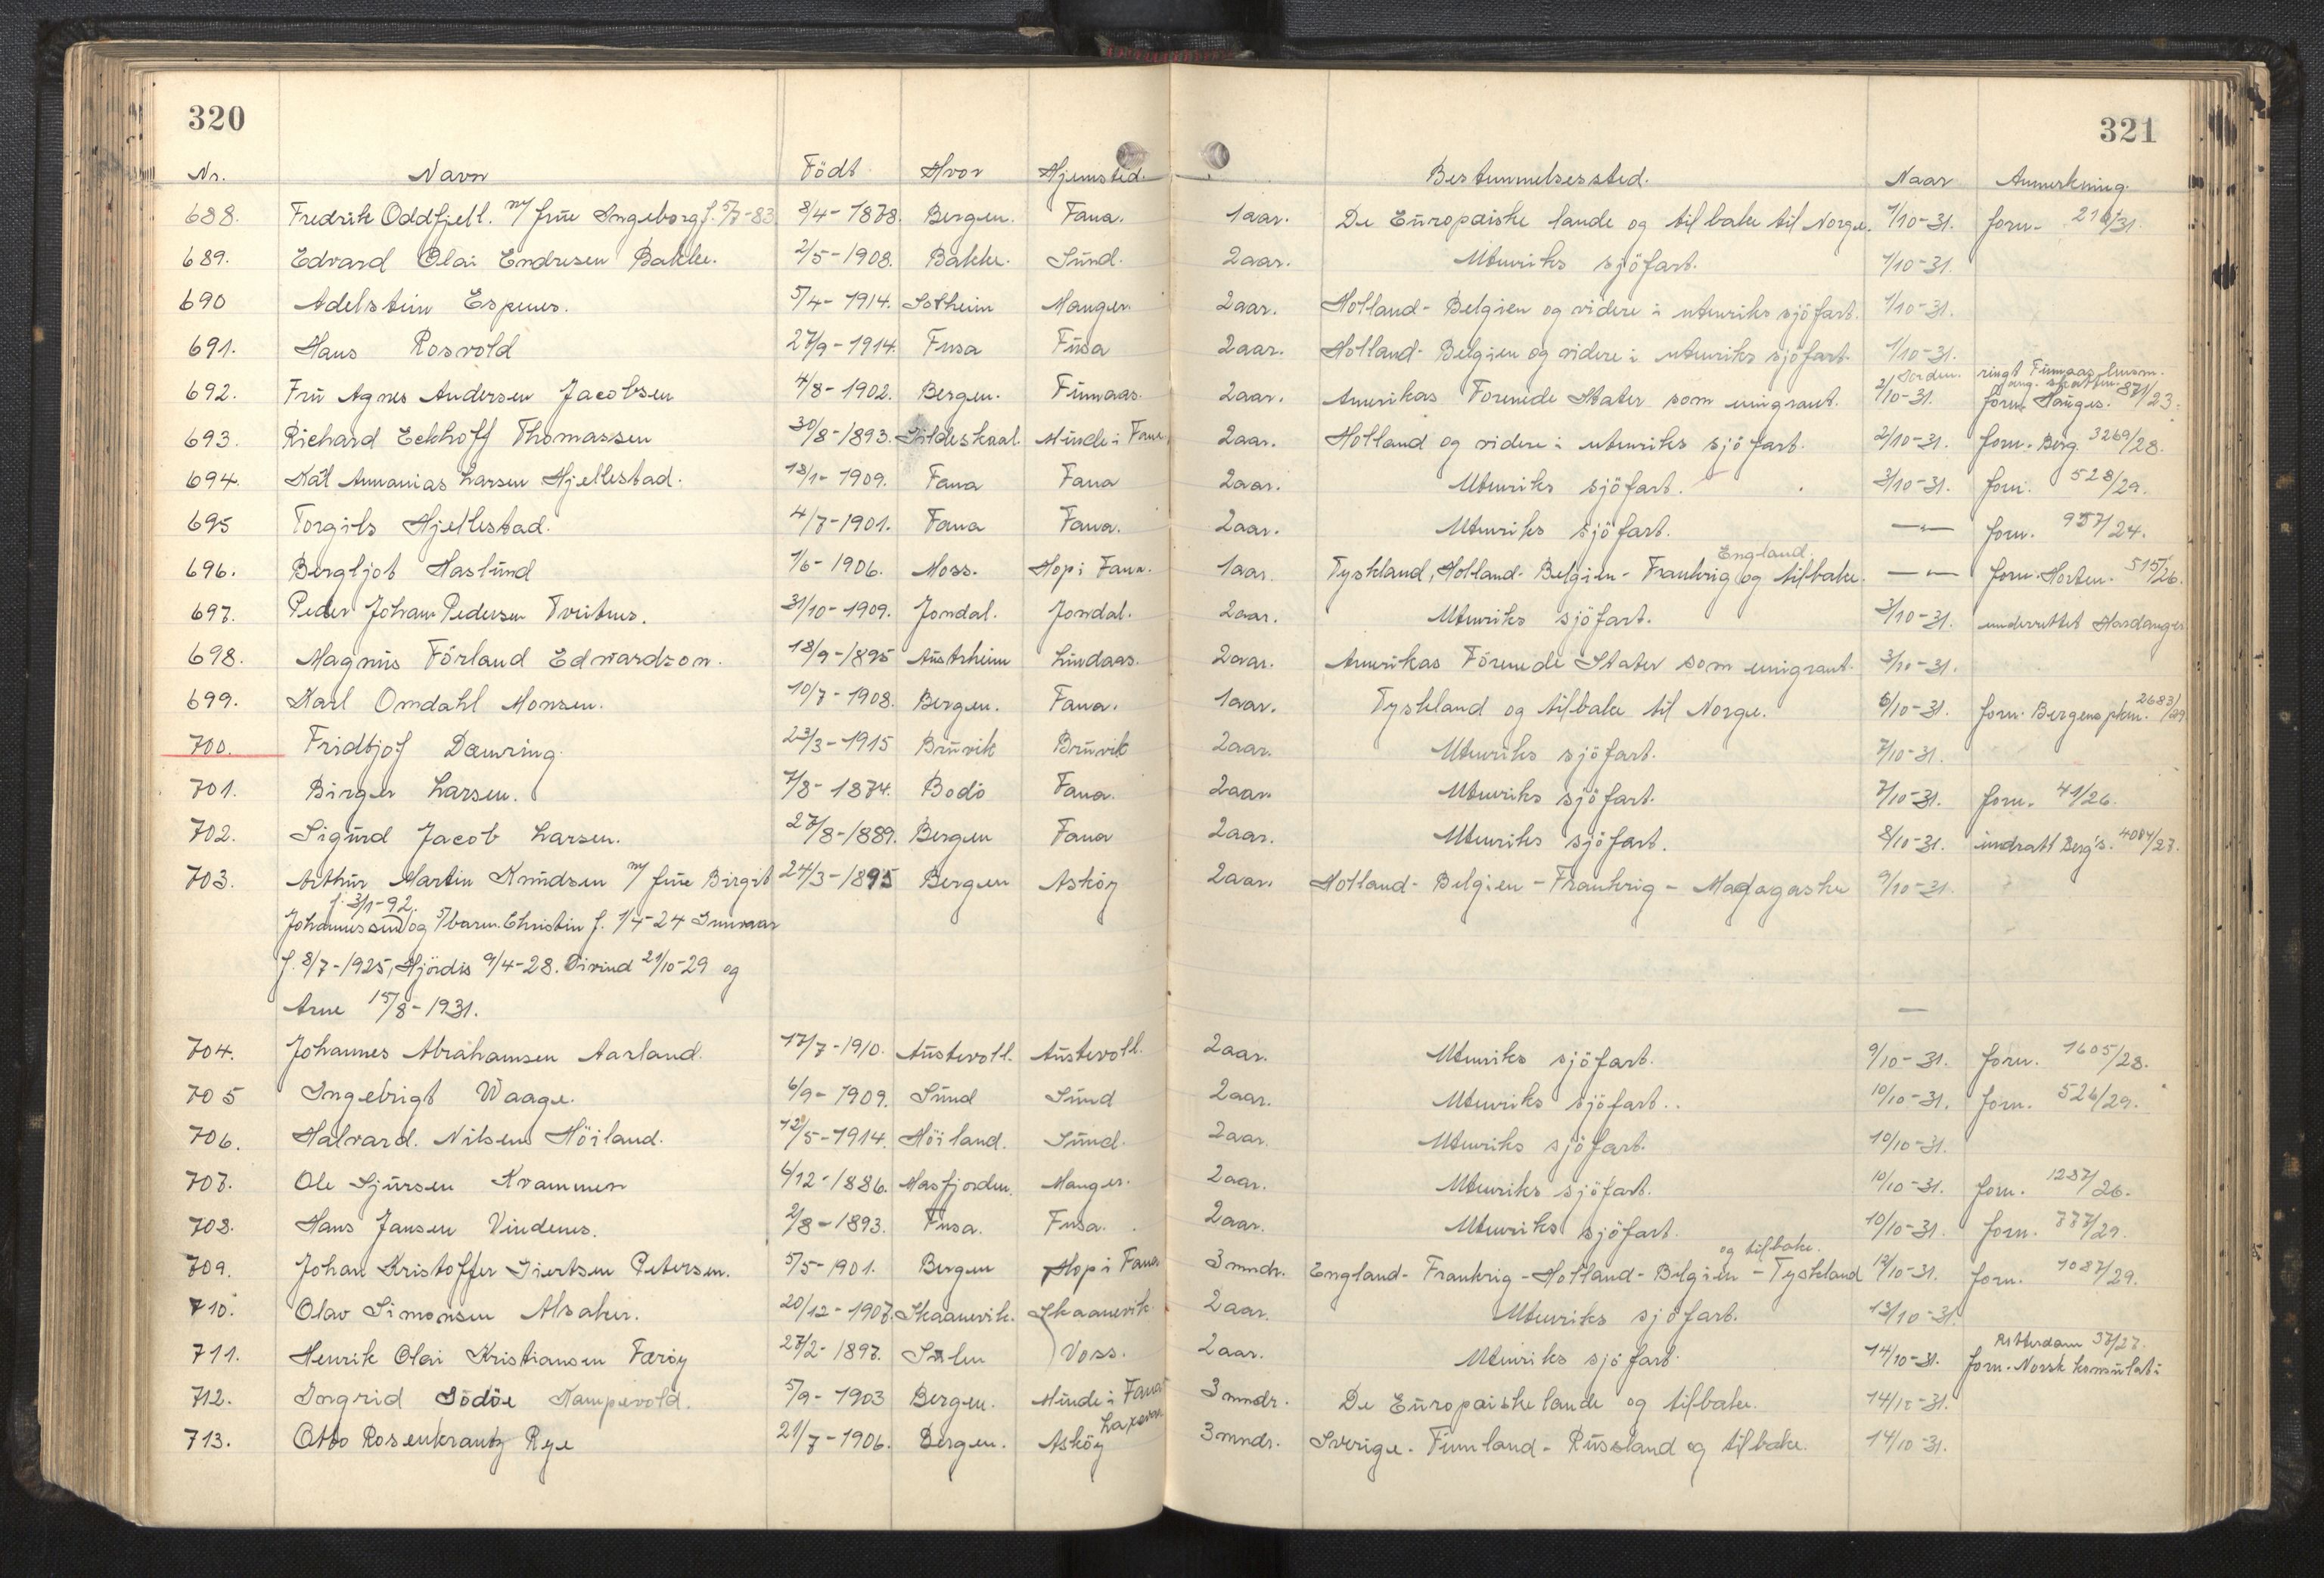 320
321
Nr. Navn Födt Hvor Hjemsted. Bestemmelsessted. Naar Anmerkning.
688. Fredrik Oddfjell. m/ frue Ingeborg f. 5/7-83 8/4-1878. Bergen. Fana. 1aar. De Europæiske lande og tilbake til Norge. 1/10-31. forn.
689. Edvard Olai Endresen Bakke. 2/5-1908. Bakke. Sund. 2aar. Utenriks sjöfart. 1/10-31.
690 Adelstein Espenes. 5/4-1914. Solheim Manger. 2aar. Holland- Belgien og videre i utenriks sjöfart. 1/10-31.
691. Hans Rosvold 27/9-1914. Fusa Fusa 2aar. Holland- Belgien og videre i utenriks sjöfart. 1/10-31.
ringt
692. Fru Agnes Andersen Jacobsen 4/8-1902. Bergen. 2aar. Amerikas Forenede Stater som emigrant. 2/10-31. forn. Hauges. 871/23.
693. Richard Eckhoff Thomassen 30/8-1893. Gildeskaal. Minde i Fana 2aar. Holland og videre i utenriks sjöfart. 2/10-31. forn. Berg. 3269/28.
694. Kåt Annanias Larsen Hjellestad. 18/1-1909. Fana Fana 2aar. Utenriks sjöfart. 3/10-31. forn. 528/29.
695 Torgils Hjellestad. 4/7-1901. Fana Fana. 2aar. Utenriks sjöfart. —"— forn. 957/24.
England.
696. Bergljot Haslund 1/6-1906. Moss. Hop i Fana. 1aar. Tyskland, Holland- Belgien- Frankrig og tilbake. —"— forn. Horten. 515/26.
697. Peder Johan Pedersen Tveitnes. 31/10-1909. Jondal. Jondal. 2aar. Utenriks sjöfart. 3/10-31. underrettet Hardanger
698. Magnus Förland Edwardson. 18/9-1895 Austrheim Lindaas. 2aar. Amerikas Forenede Stater som emigrant. 3/10-31.
699. Karl Omdahl Monsen. 10/7-1908. Bergen. Fana. 1aar. Tyskland og tilbake til Norge. 6/10-31. forn. Bergens pkm. 2683/29
700. Fridtjof Dæmring. 23/3-1915 Bruvik Bruvik 2aar. Utenriks sjöfart. 7/10-31.
701. Birger Larsen. 7/8-1874. Bodö Fana. 2aar. Utenriks sjöfart. 7/10-31. forn. 41/26.
702. Sigurd Jacob Larsen. 27/8-1889. Bergen Fana 2aar. Utenriks sjöfart. 8/10-31. indratt Berg's. 4084/27.
703. Arthur Martin Knudsen m/ frue Birgit 24/3-1895 Bergen Asköy 2aar. Holland- Belgien- Frankrig- Madagaskar 9/10-31.
f. 3/1-92.
Johannessen og 5 barn. Christin f. 1/4-24
f. 8/7-1925, Hjördis 9/4-28. Eivind 21/10-29 og
Arne 15/8-1931. —
704. Johannes Abrahamsen Aarland. 17/7-1910. Austevoll. Austevoll. 2aar. Utenriks sjöfart. 9/10-31. forn. 1605/28.
705 Ingebrigt Waage. 6/9-1909. Sund Sund 2aar. Utenriks sjöfart. 10/10-31. forn. 526/29.
706. Halvard. Nilsen Höiland. 12/5-1914. Höiland. Sund. 2aar. Utenriks sjöfart. 10/10-31.
707. Ole Sjursen Krammen 6/12-1886. Masfjorden. Manger. 2aar. Utenriks sjöfart. 10/10-31. forn. 1287/26.
708. Hans Jansen Vindenes. 2/8-1893. Fusa. Fusa. 2aar. Utenriks sjöfart. 10/10-31. forn. 777/29.
og tilbake.
709. Johan Kristoffer Siertsen Petersen. 5/5-1901. Bergen Hop i Fana 3 mndr. England- Frankrig- Holland- Belgien- Tyskland 12/10-31. forn. 1087/29.
710. Olav Simonsen Alsaker. 20/12-1907. Skaanevik. Skaanevik. 2aar. Utenriks sjöfart. 13/10-31.
Rotterdam 37/27.
711. Henrik Olai Kristiansen Færöy 27/2-1897. Solun Voss. 2aar. Utenriks sjöfart. 14/10-31. forn. Norsk konsulat i
712. Ingrid Södöe Kampevold. 5/9-1903 Bergen. Minde i Fana 3 mndr. De Europæiske lande og tilbake. 14/10-31.
Laxevaag
713. Otto Rosenkrantz Rye 21/7-1906. Bergen. Asköy 3 mndr. Sverige- Finnland- Russland og tilbake. 14/10-31.